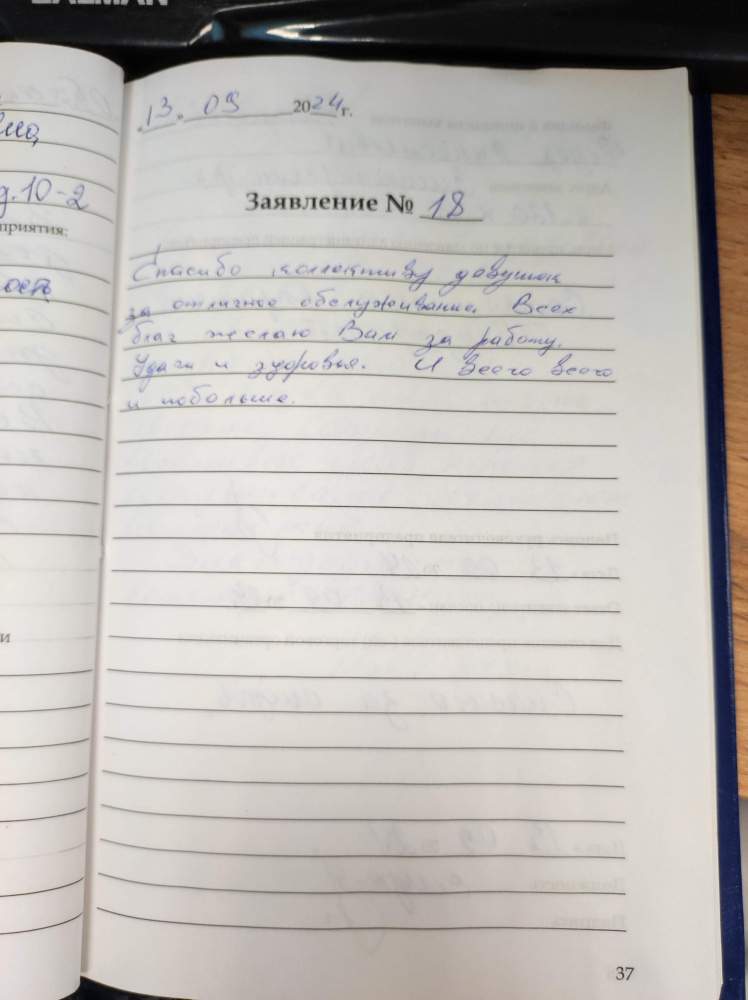 ZALMAN
д. 10-2
приятия:
ость
и
13. 09 2024 г.
Заявление № 18
Спасибо коллективу девушок
за отличное обслуживание. Всех
благ желаю Вам за работу.
Удачи и здоровья. И всего всего
и побольше.
37